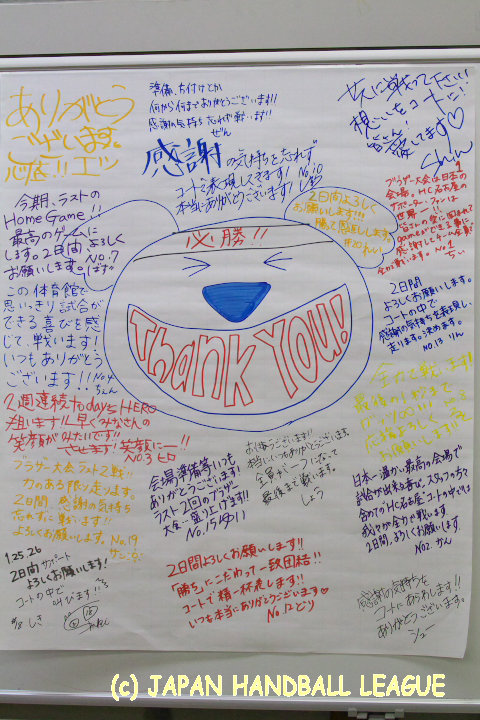 ありがとう
ございます。
心底!! エツ
準備、片付けとか
何から何までありがとうございます!!
感謝の気持ち忘れず戦います!!
ぜん
感謝の気持ちを忘れず
コートで表現してきます! No.10
本当にありがとうございます!
共に戦って下さい
想いをコートに!
皆さん!
愛してます♡
今期、ラストの
Home Game!!
最高のゲームに
します。2日間よろしく
お願いします。No.7
この体育館で
思いっきり試合が
できる喜びを感
じて、戦います!
いつもありがとう
ございます!! No.4
2日間よろしく
お願いします!!!
勝って恩返しします!
#20 れい
ブラザー大会は日本の
会場。HC名古屋の
サポーター・ファンは
世界一!!
皆さんの愛に囲まれて
gameができる事に
感謝して
No.1
ちい
必勝!!
Thank You!
2日間
よろしくお願いします。
コートの中で
感謝の気持ちを表現し、
走ります。決めます。
No.13 りん
全力で戦います!
最後の1秒まで
応援よろしく
お願いします!!
2週連続todays HERO
狙います!!早くみなさんの
笑顔がみたいです!!
させます!笑顔にー!!
No.3 ヒロ
ブラザー大会ラスト2戦!!
力のある限り走ります。
2日間、感謝の気持ち
忘れずに戦います!!
よろしくお願いします。No.19
サン
会場準備等いつも
ありがとうございます!
ラスト2回のブラザー
大会…盛り上げます!!
No.15
お忙しうございます!!
本当にいつもありがとうございます
全員が一つになって
最後まで戦います。
しょう
日本一温かい最高の会場で
試合が出来る喜び。スタッフの方々
含めてのHC名古屋。コートの中では
我々が全力で戦います
2日間、よろしくお願いします。
No2. かん
1.25.26
2日間サポート
よろしくお願いします!
コートの中で
叫びます!!
#18 しき
2日間よろしくお願いします!!
「勝ち」にこだわって一致団結!!
コートで精一杯走ります!!
いつも本当にありがとうございます♡
No.12 どり
感謝の気持ちを
コートにあらわします!!
ありがとうございます。
(c) JAPAN HANDBALL LEAGUE